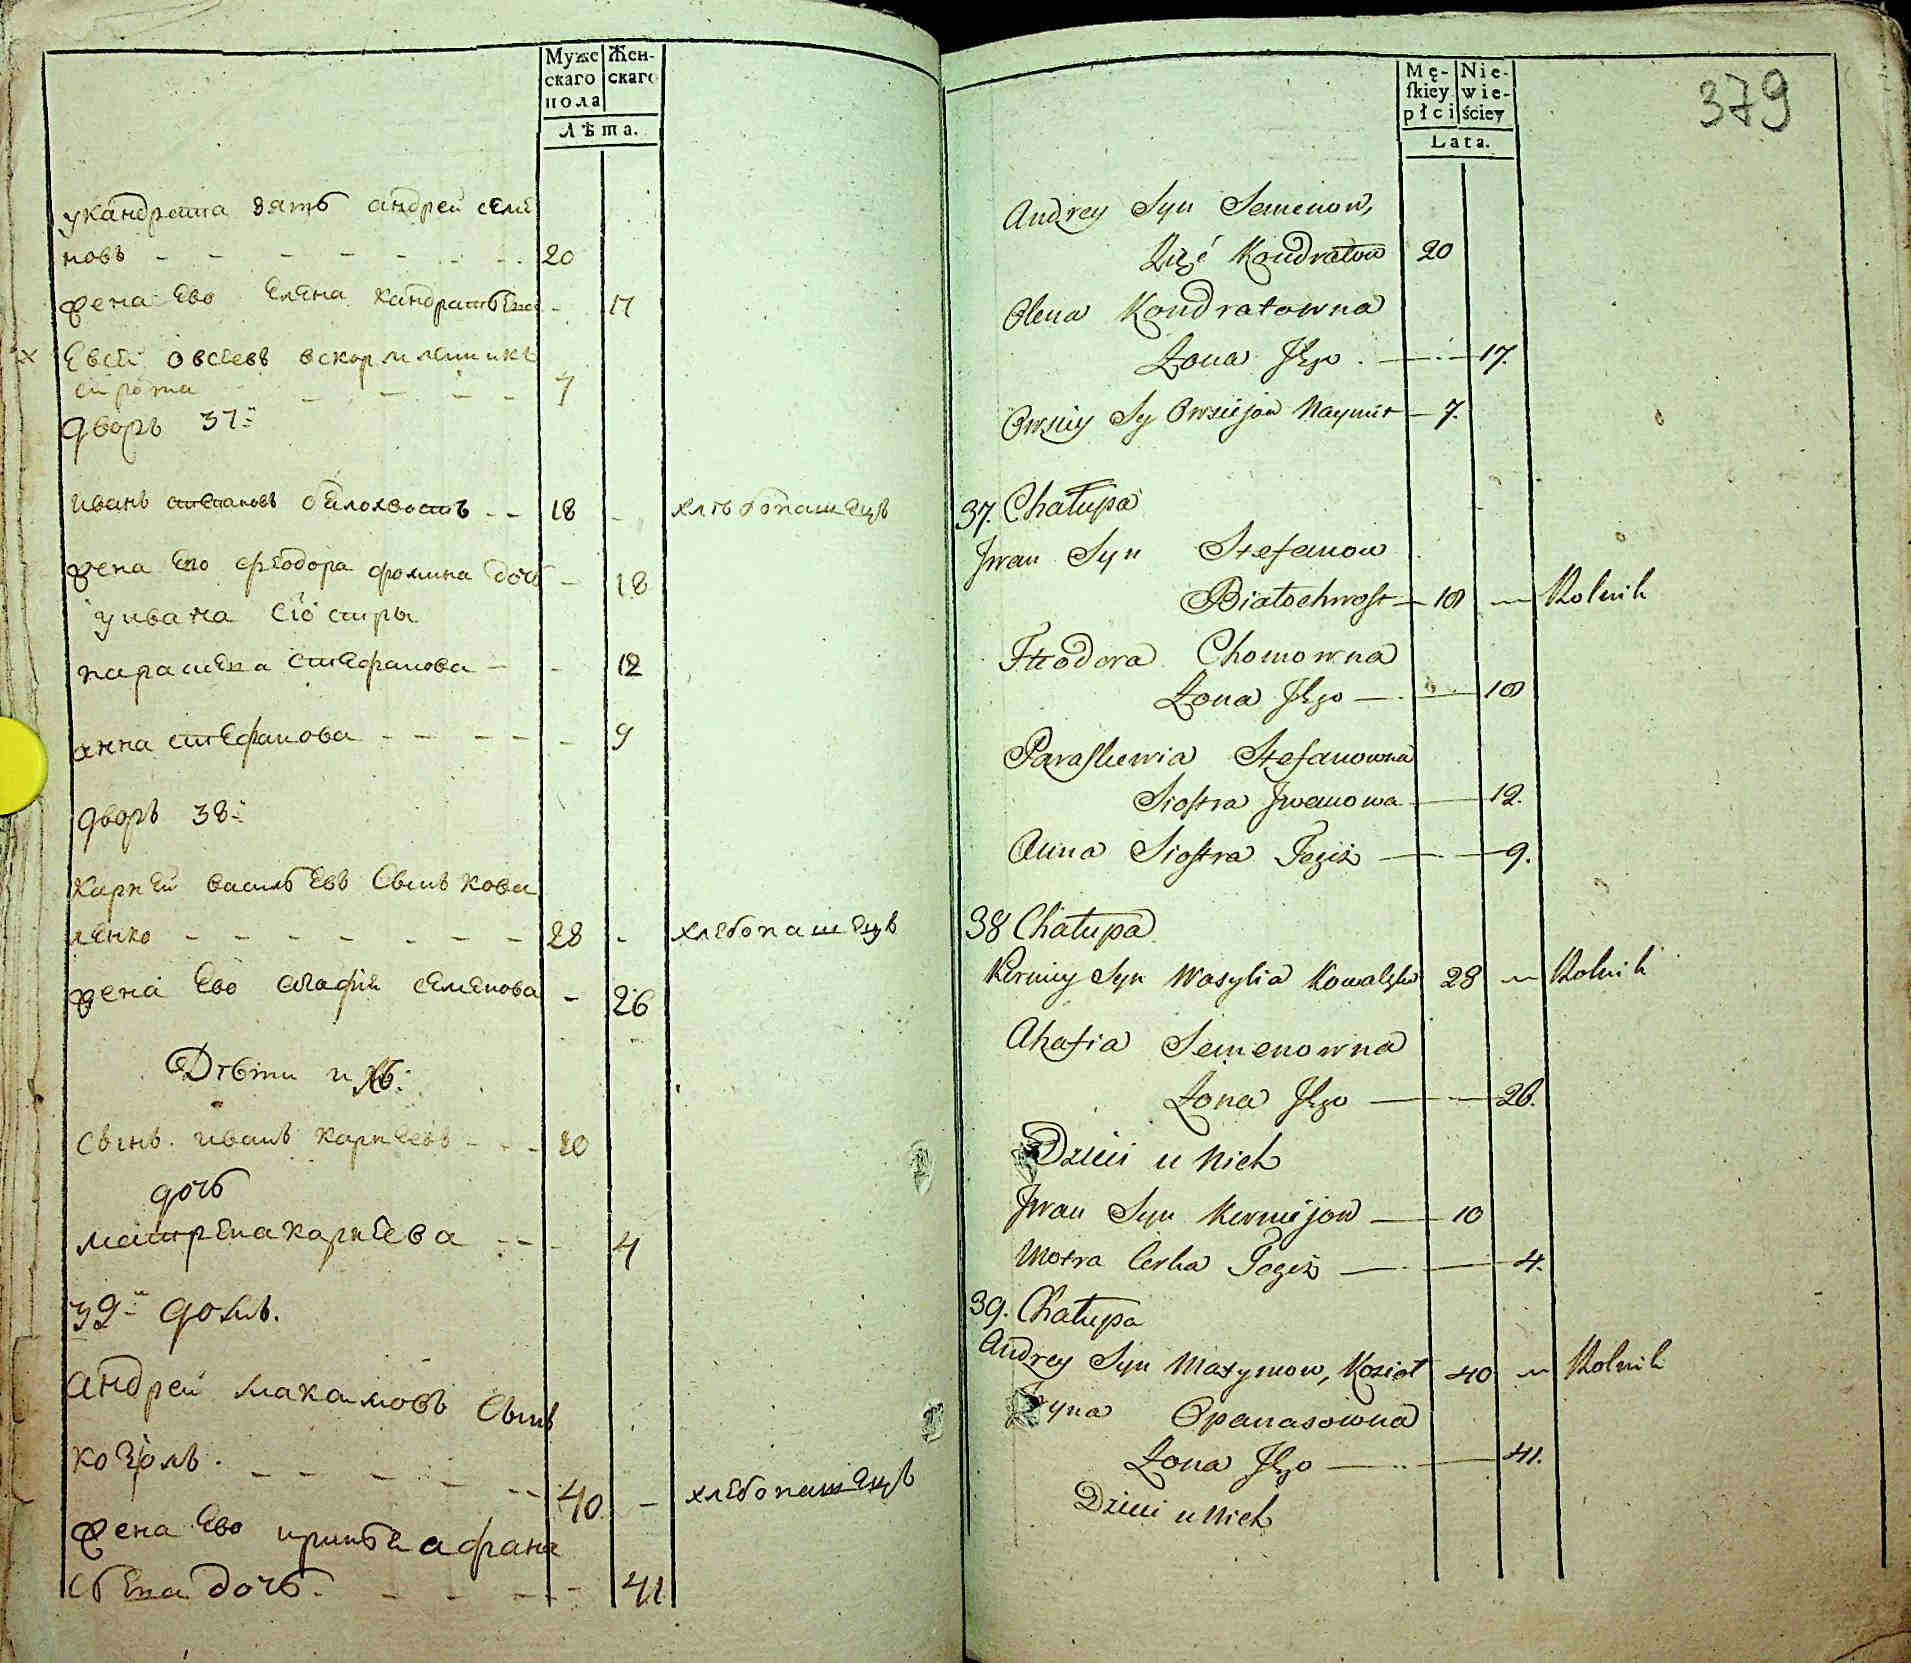 Муже
скаго
пола
Жен-
скаго
Лѣта.
укандрата зять андрей семе
новъ - - - - - - - 20
жена ево елена кандратьева - 17
х евсей овсеевъ вскормленникъ
сирота - - - - 7
дворъ 37й
иванъ степановъ белохвостъ - - 18 - хлѣбопашецъ
жена ево феодора фомина доч - 18
уивана сестры
парасцека стефанова - - 12
анна стефанова - - - - - 9
дворъ 38й
карней васильевъ сынъ кова
ленко - - - - - - - 28 - хлебопашецъ
жена ево агафия семенова - 26
Дѣти ихъ:
сынъ. иванъ карнеевъ - - - 10
дочь
матренакарнеева - - - 4
39й домъ.
андрей макаимовъ сынъ
козіолъ. - - - - - - 40 - хлебопашецъ
жена ево ирина афана
сьева дочь. - - - - - 41
379
Mę-
skiey
płci
Nie-
wie-
ściey
Lata.
Andrey Syn Semenow,
Zięć Kondratow 20
Olena Kondratowna
Żona Jego . — 17.
Owsiey Sy Owsiejow Naymit — 7.
37. Chałupa
Jwan Syn Stefanow
Białochwost — 18 — Rolnik
Fteodora Chomowna
Żona Jego — 18
Paraskewia Stefanowna
Siostra Jwanowa — 12.
Anna Siostra Tegiż — 9.
38 Chałupa
Kerniey Syn Wasylia Kowalęko 28 — Rolnik
Ahafia Semenowna
Żona Jego — 26.
Dzieci u Nich
Jwan Syn Kerniejow — 10
Motra Corka Tegiż — 4.
39. Chałupa
Andrey Syn Maxymow, Kozioł 40 — Rolnik
Jryna Opanasowna
Żona Jego — 41.
Dzieci u Nich